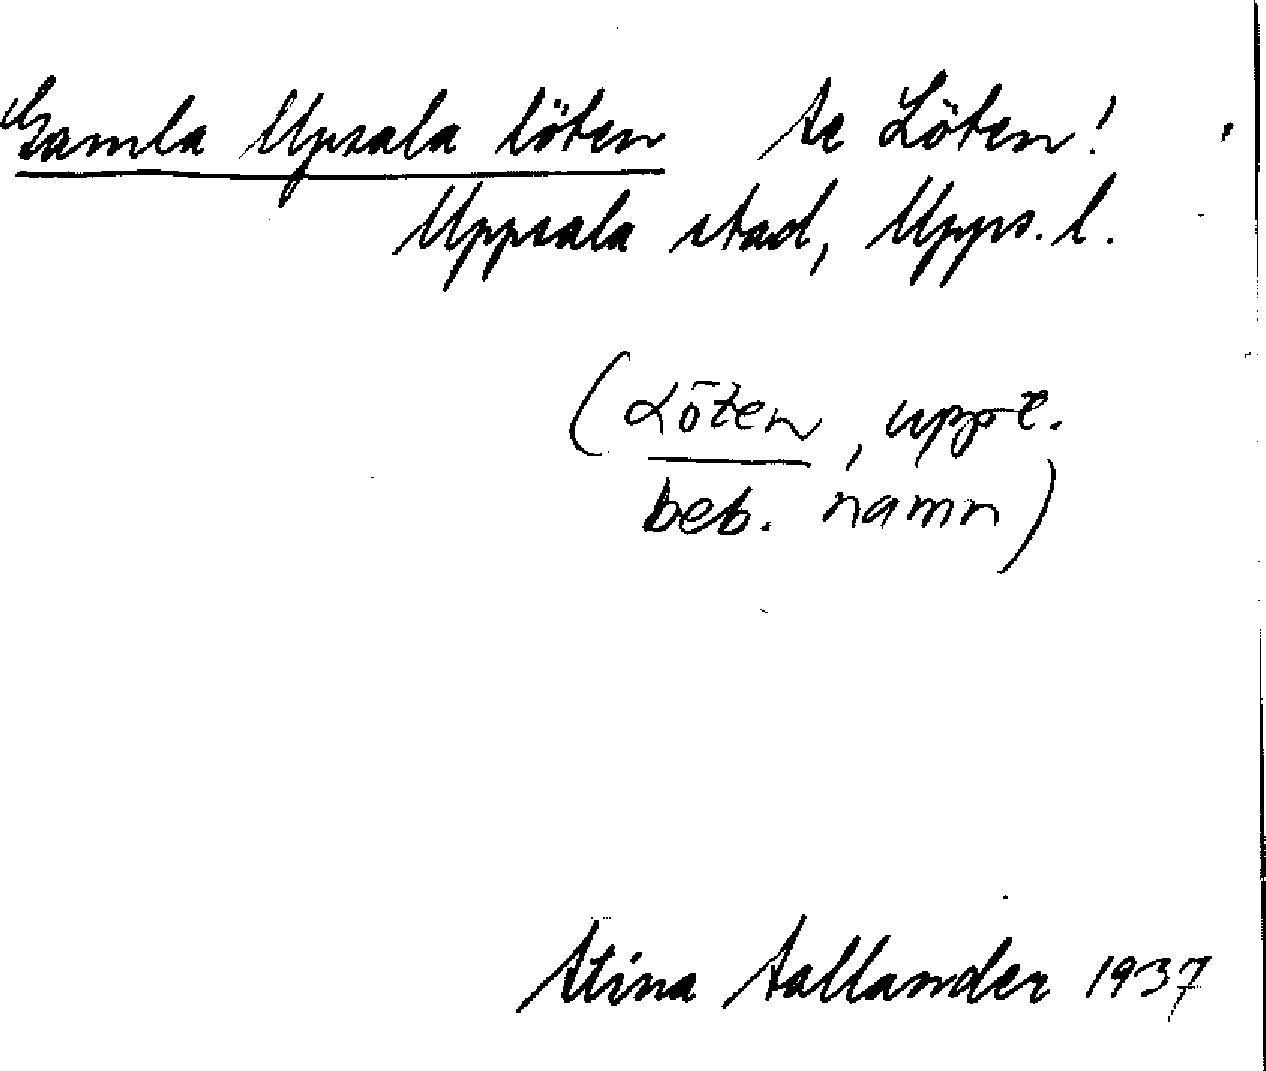 Gamla Upsala löten se Löten!
Uppsala stad, Upps. l.
(Löten, uppt.
beb. namn)
Stina Sallander 1937